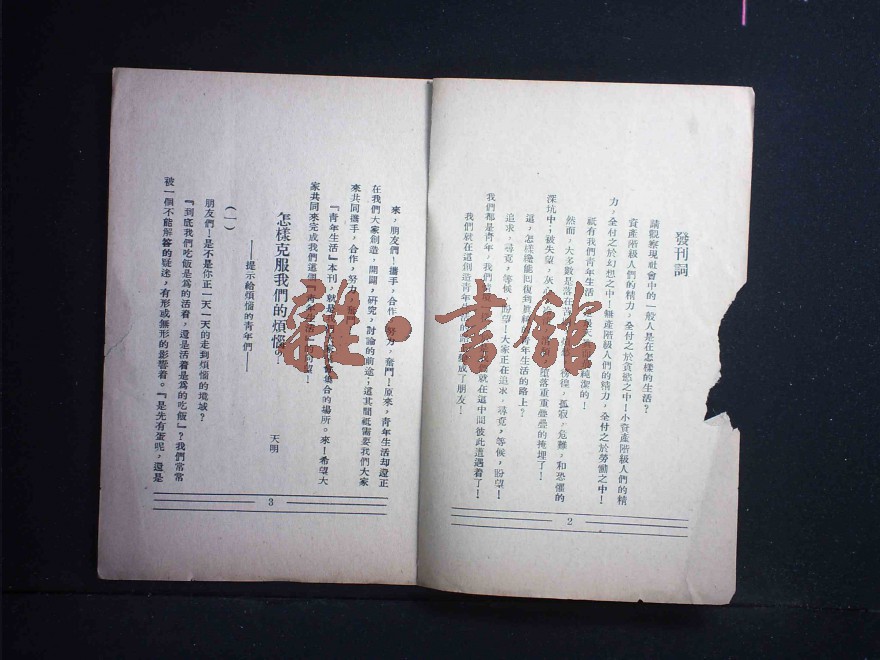 發刊詞
請觀察現社會中的一般人是在怎樣的生活?
資產階級人們的精力,全付之於貪慾之中!小資產階級人們的精
力,全付之於幻想之中!無產階級人們的精力,全付之於勞働之中!
祇有我們青年生活 純潔的!
然而,大多數是落在 徬徨,孤寂,危難,和恐懼的
深坑中;被失望,灰心 墮落重重疊疊的掩埋了!
這,怎樣纔能回復到 青年生活的路上?
追求,尋覓,等候,盼望!大家正在追求,尋覓,等候,盼望!
我們都是青年,我們 就在這中間彼此遭遇着了!
我們就在這創造青年 成了朋友!
2
來,朋友們!攜手,合作,努力,奮鬥!原來,青年生活却還正
在我們大家創造,開闢,研究,討論的前途;這其間祇需要我們大家
來共同攜手,合作,努力,奮鬥!
『青年生活』本刊,就是 集合的場所。來!希望大
家共同來完成我們這個『青年生活』的 望!
怎樣克服我們的煩惱?!
天明
——提示給煩惱的青年們——
(一)
朋友們!是不是你正一天一天的走到煩惱的境域?
『到底我們吃飯是爲的活着,還是活着是爲的吃飯』?我們常常
被一個不能解答的疑迷,有形或無形的影響着。『是先有蛋呢,還是
3
雜·書館